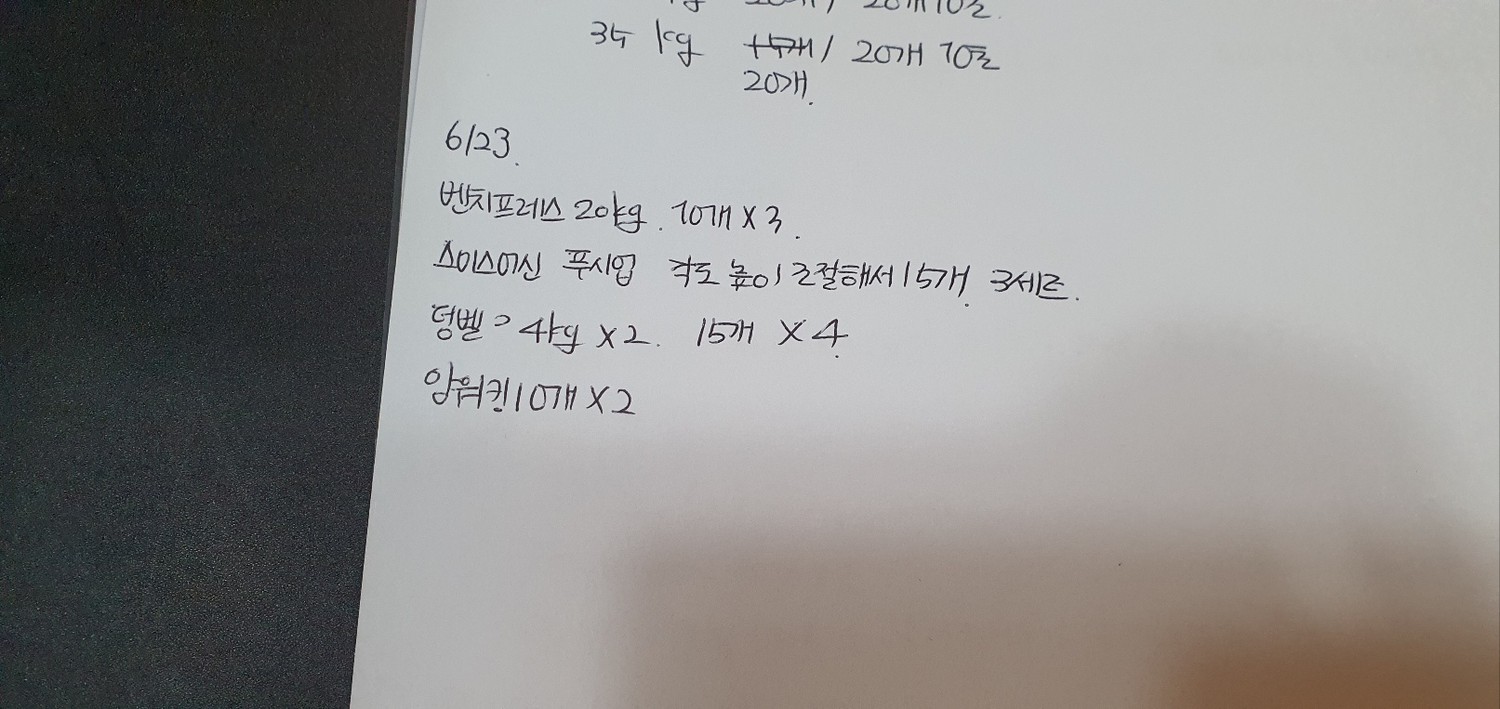 20개/ 20개 10초.
35 kg 15개/ 20개 10초
20개.
6/23.
벤치프레스 20kg. 10개 X 3.
스미스머신 푸시업 각도 높이 조절해서 15개. 3세트.
덩벨 > 4kg X 2. 15개 X 4.
암워킹 10개 X 2